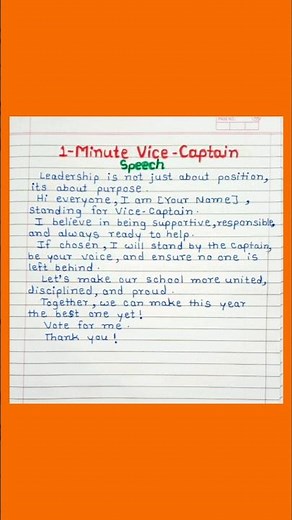 1-Minute Vice-Captain
Speech
Leadership is not just about position,
its about purpose.
Hi everyone, I am [Your Name],
standing for Vice-Captain.
I believe in being supportive, responsible,
and always ready to help.
If chosen, I will stand by the Captain,
be your voice, and ensure no one is
left behind.
Let's make our school more united,
disciplined, and proud.
Together, we can make this year
the best one yet!
Vote for me.
Thank you!